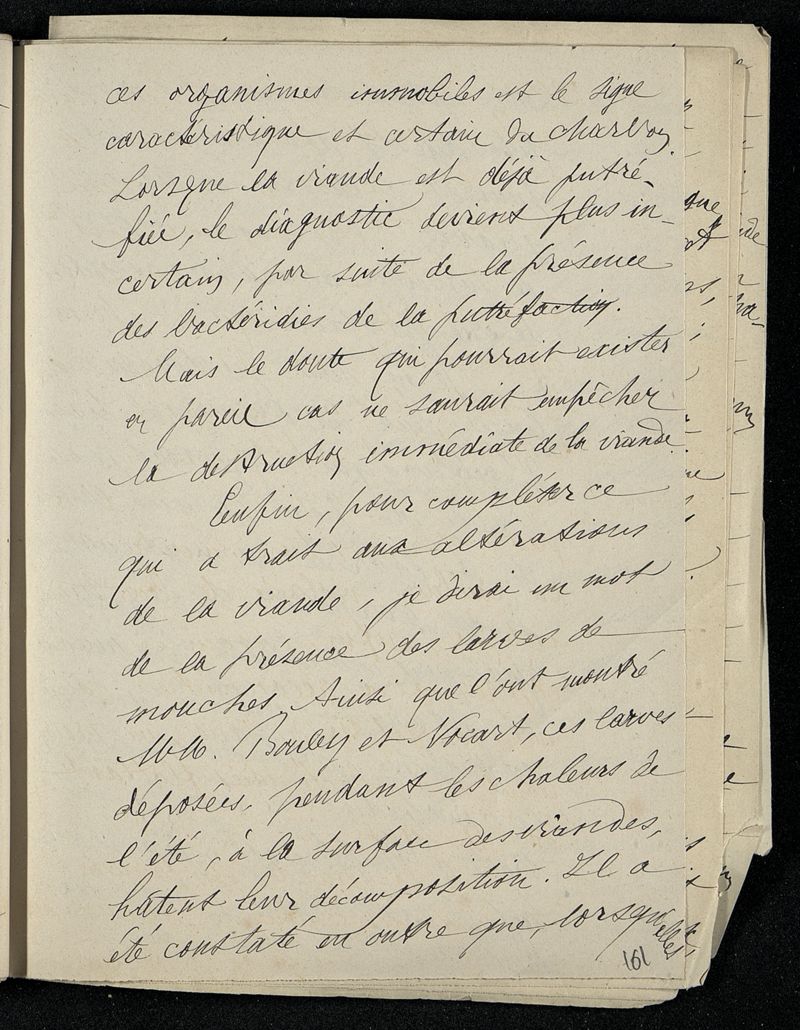 ces organismes immobiles est le signe
caractéristique et certain du charbon.
Lorsque la viande est déjà putré-
fiée, le diagnostic devient plus in-
certain, par suite de la présence
des bactéridies de la putréfaction.
Mais le doute qui pourrait exister
en pareil cas ne saurait empêcher
la destruction immédiate de la viande.
Enfin, pour compléter ce
qui a trait aux altérations
de la viande, je dirai un mot
de la présence des larves de
mouches. Ainsi que l'ont montré
MM. Bouley et Nocart, ces larves
déposées, pendant les chaleurs de
l'été, à la surface des viandes,
hâtent leur décomposition. Il a
été constaté en outre que, lorsqu'elles
161